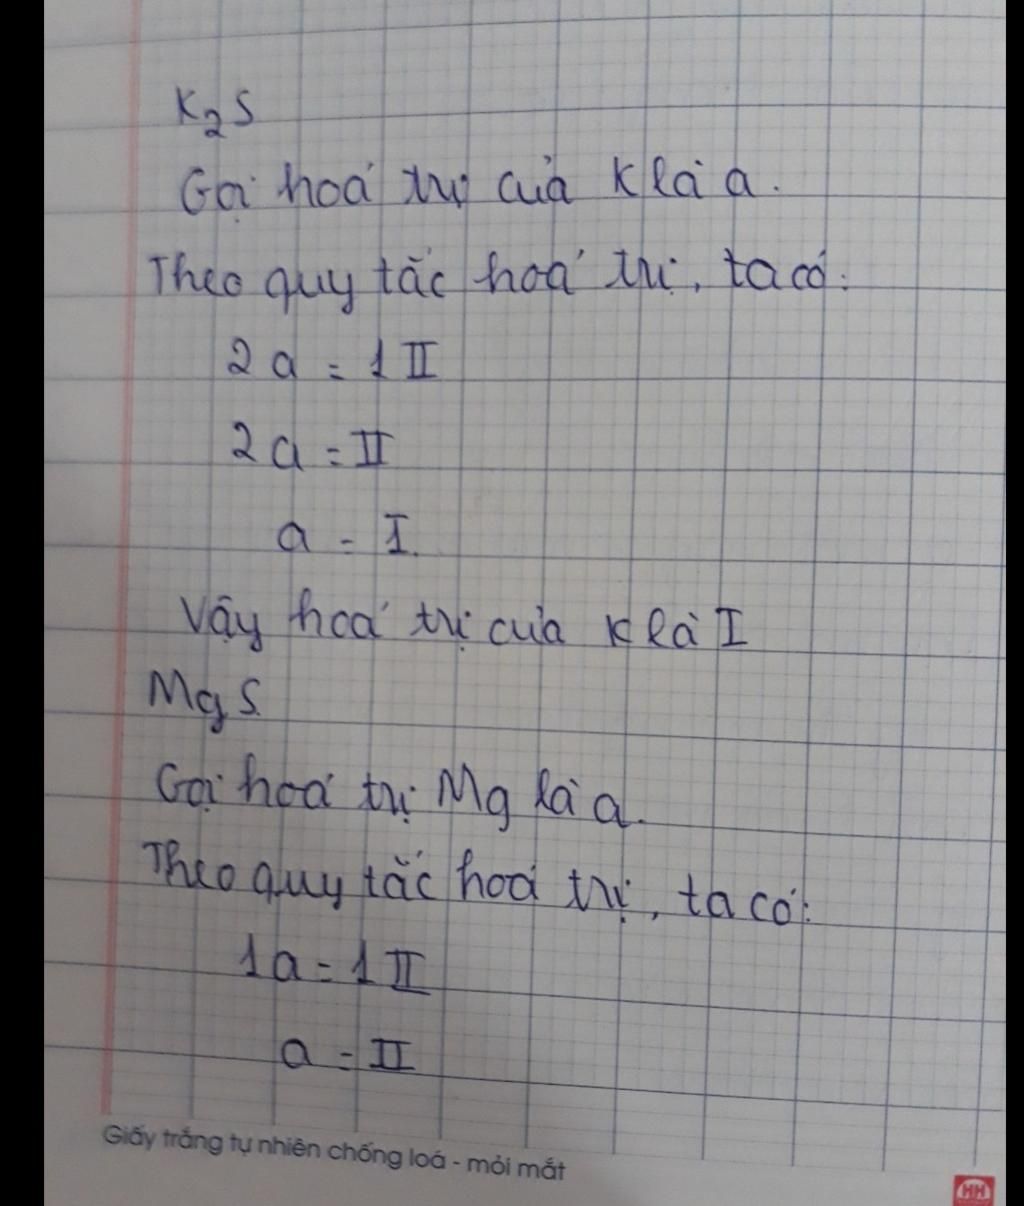 K₂S
Gọi hoá trị của K là a.
Theo quy tắc hoá trị, ta có:
2a = 1II
2a = II
a = I.
Vậy hoá trị của K là I
MgS.
Gọi hoá trị Mg là a.
Theo quy tắc hoá trị, ta có:
1a = 1II
a = II
Giấy trắng tự nhiên chống loá - mỏi mắt
HH